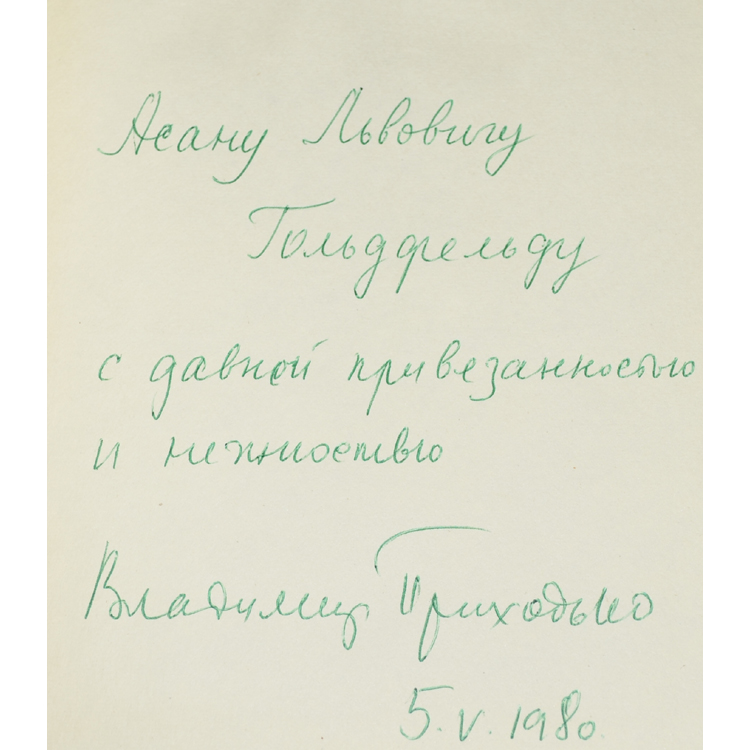 Асану Львовичу
Гольдфельду
с давней привезанностью
и нежностью
Владимир Приходько
5.V.1980.